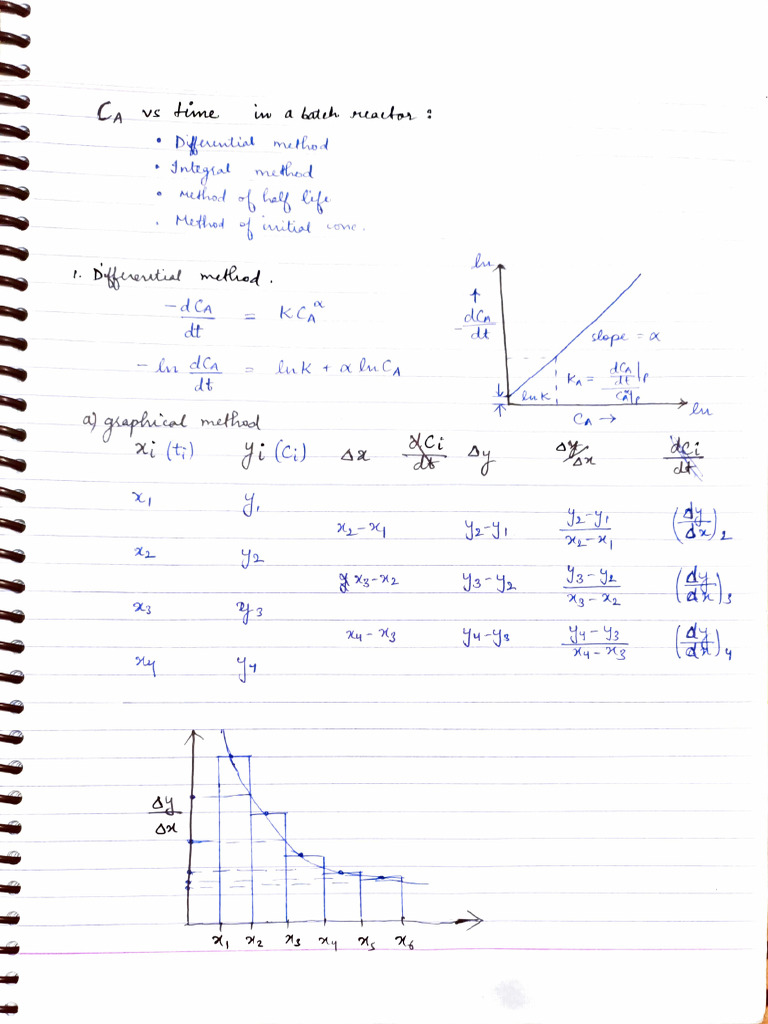 CA vs time in a batch reactor :
• Differential method
• Integral method
• Method of half life
. Method of initial conc.
1. Differential method .
-dCA/dt = KCA^α
- ln dCA/dt = lnK + α lnCA
ln
↑
- dCA/dt
slope = α
KA = (dCA/dt|p)/(CA^α|p)
lnK
CA →
ln
a) graphical method
xi (ti) yi (Ci) Δx dCi/dt Δy Δy/Δx dCi/dt
x1 y1
x2-x1 y2-y1 (y2-y1)/(x2-x1) (Δy/Δx)2
x2 y2
x3-x2 y3-y2 (y3-y2)/(x3-x2) (dy/dx)3
x3 y3
x4-x3 y4-y3 (y4-y3)/(x4-x3) (dy/dx)4
x4 y4
Δy/Δx
x1 x2 x3 x4 x5 x6